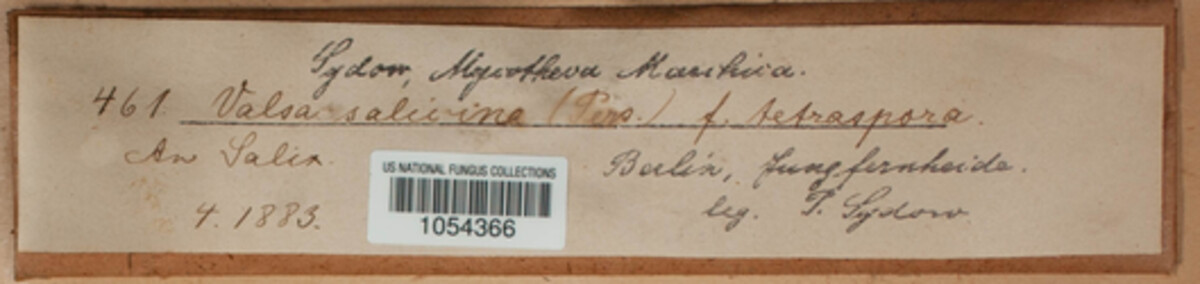 Sydow, Mycotheca Marchica.
461. Valsa salicina (Pers.) f. tetraspora.
An Salix.
Berlin, Jungfernheide.
4. 1883.
leg. P. Sydow
US NATIONAL FUNGUS COLLECTIONS
1054366